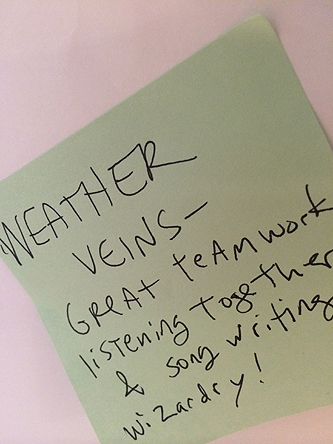 WEATHER
VEINS-
GREAT TEAMWORK
listening together
& song writing
wizardry!